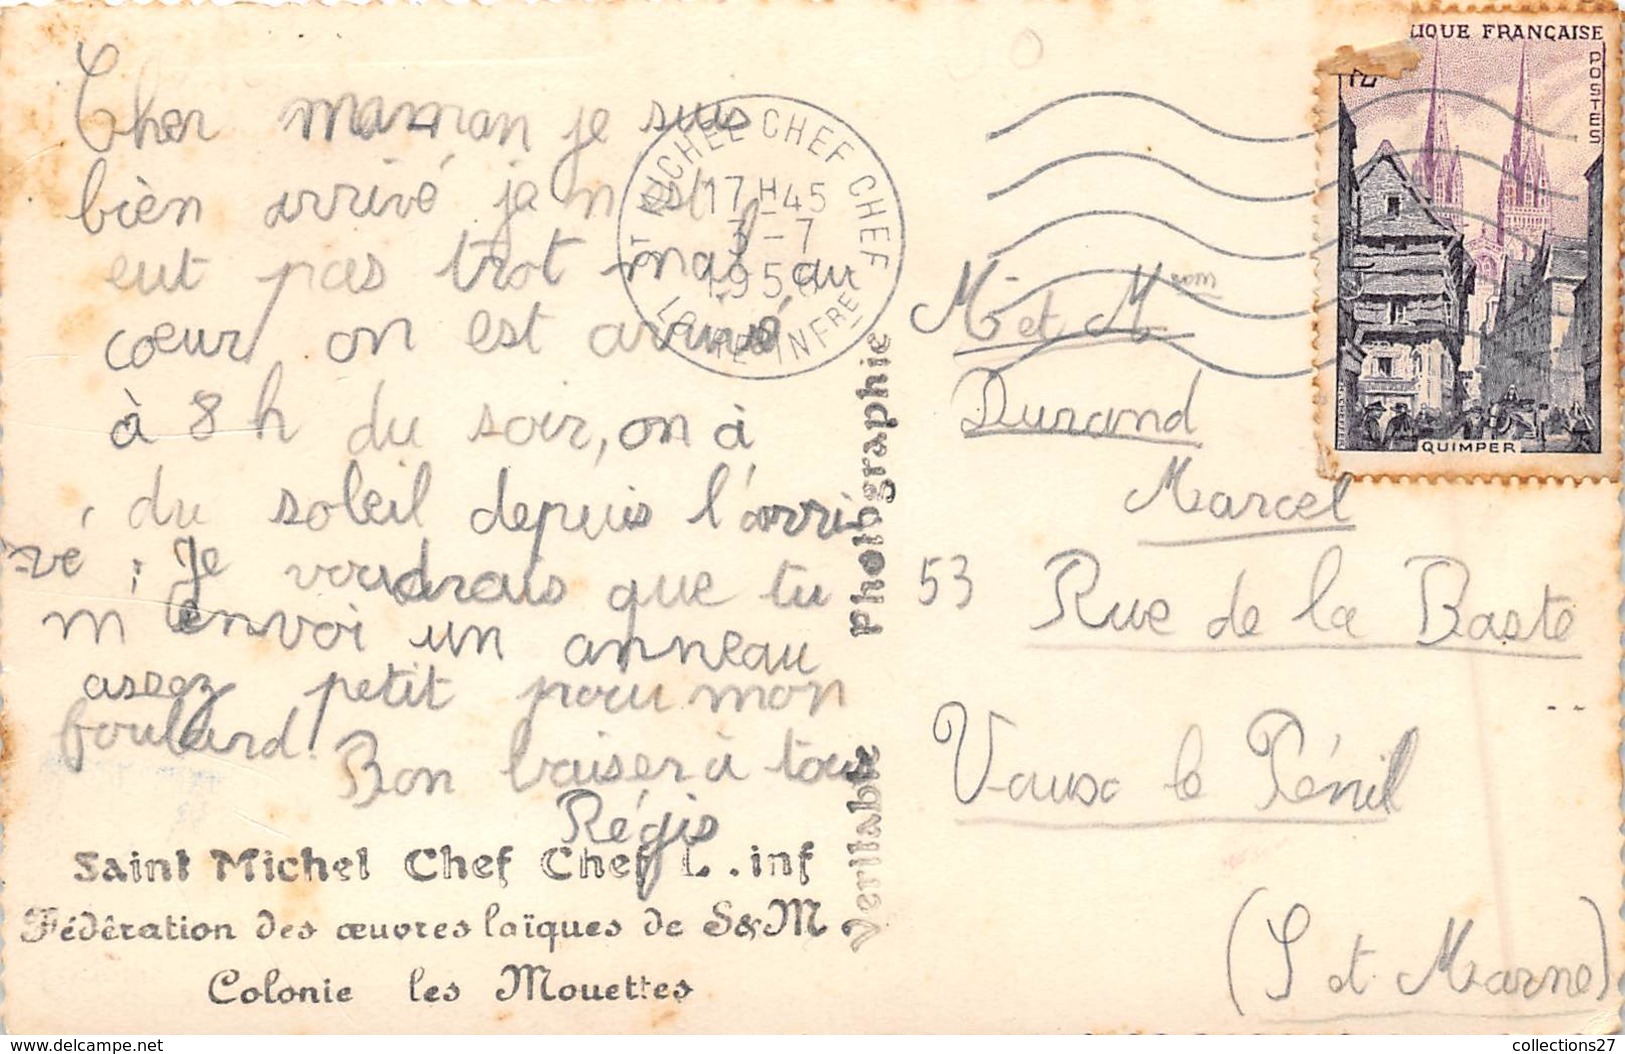 Cher maman je suis
bièn arrivé je n est
eut pas trot mal au
cœur on est arrivé
à 8 h du soir, on à
du soleil depuis l'arri
-vé ; Je voudrais que tu
m'envoi un anneau
assez petit pour mon
foulard. Bon baiser à tous
Régis
Saint Michel Chef Chef L. inf
Fédération des œuvres laïques de S&M
Colonie les Mouettes
Véritable Photographie
ST MICHEL CHEF CHEF
17H-45
3-7
LOIRE INFRE
LIQUE FRANÇAISE
POSTES
QUIMPER
Mr et Mme
Durand
Marcel
53 Rue de la Baste
Vaux le Pénil
(S et Marne)
collections27